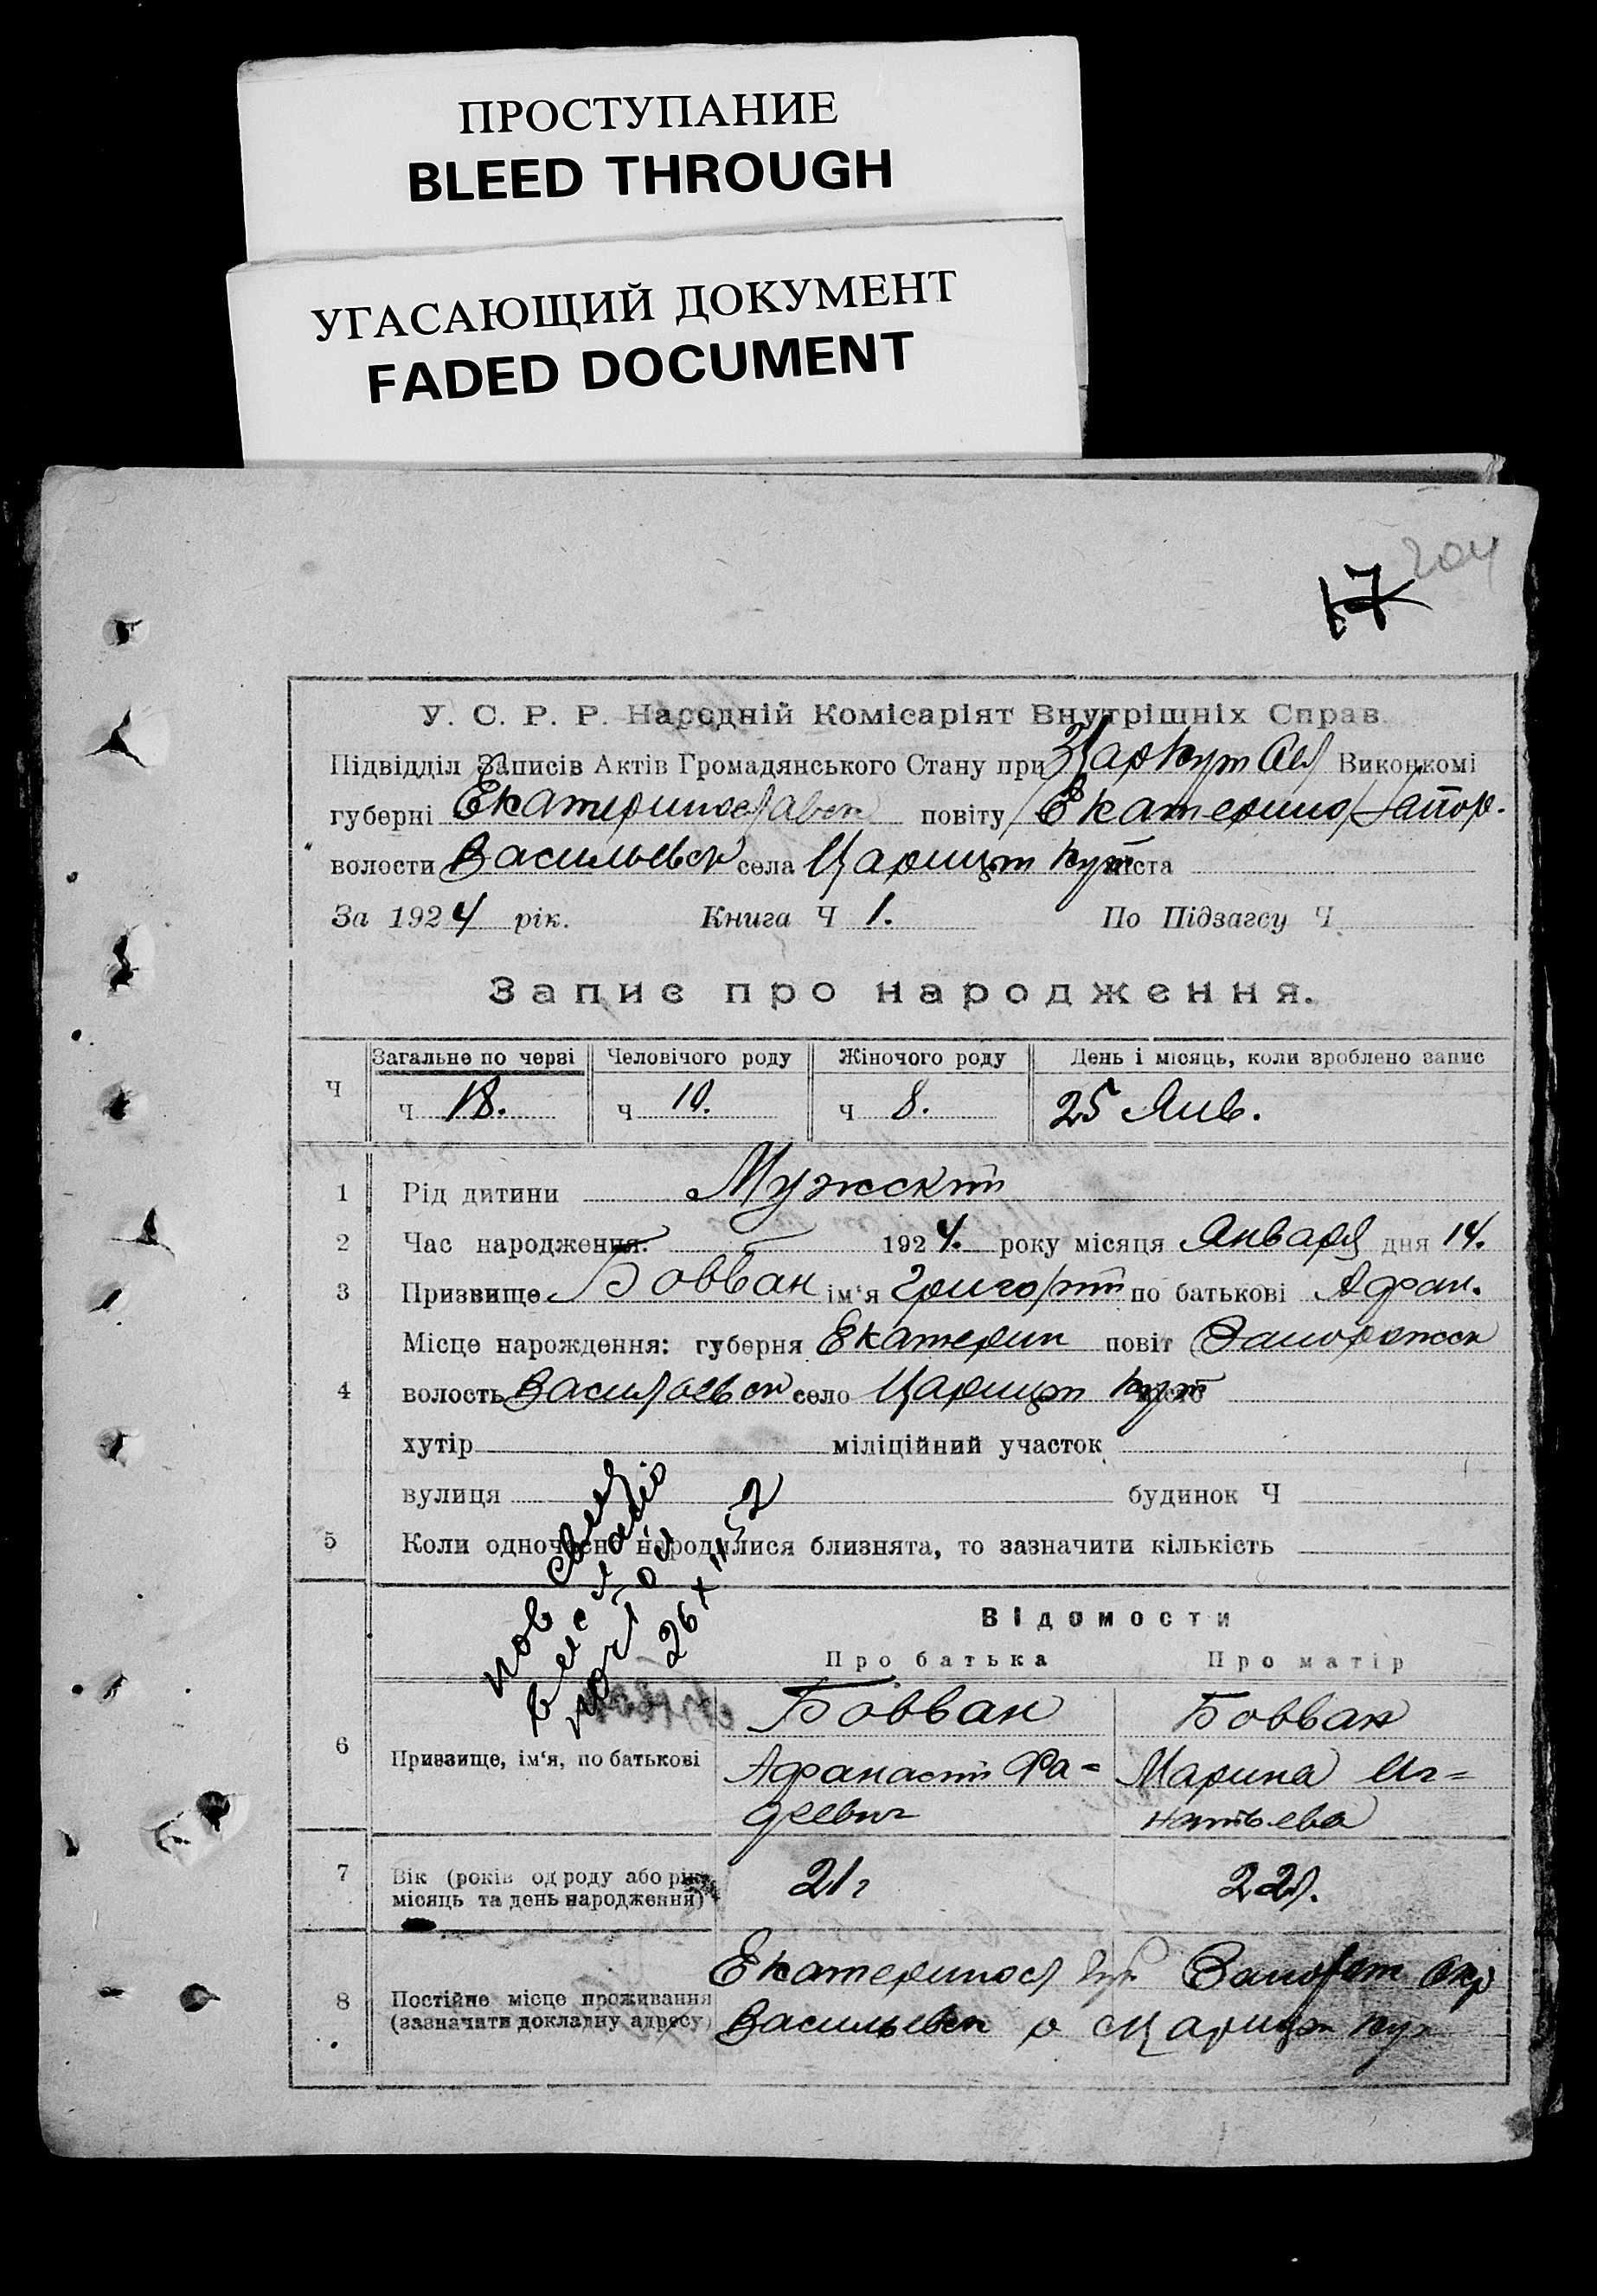 ПРОСТУПАНИЕ
BLEED THROUGH
УГАСАЮЩИЙ ДОКУМЕНТ
FADED DOCUMENT
204
17
У. С. Р. Р. Народній Комісаріят Внутрішніх Справ.
Підвідділ Записів Актів Громадянського Стану при Виконкомі
губерні Екатеринославск повіту Екатерино/Запор.
волости Васильевск села Цариц кут міста
За 1924 рік. Книга Ч 1. По Підзагсу Ч
Запис про народження.
Ч Загальне по черзі Человічого роду Жіночого роду День і місяць, коли зроблено запис
ч 18. ч 10. ч 8. 25 Янв.
1 Рід дитини Мужскт
2 Час народження. 1924. року місяця Января дня 14.
3 Призвище Бовван ім'я Григорт по батькові Афан.
Місце народждення: губерня Екатерин повіт Запорожск
4 волость Васильевск село Цариц кут місто
хутір міліційний участок
вулиця будинок Ч
5 Коли одночасно народилися близнята, то зазначити кількість
26 X 52
Відомости
Про батька Про матір
Бовван Бовван
6 Призвище, ім'я, по батькові Афанаст Фа= Марина Иг=
деевич натьева
7 Вік (років од роду або рік, 21 г 22 г.
місяць та день народження)
Екатериносл губ Запорож окр
8 Постійне місце проживання
(зазначати докладну адресу) Васильевск р с Цариц кут